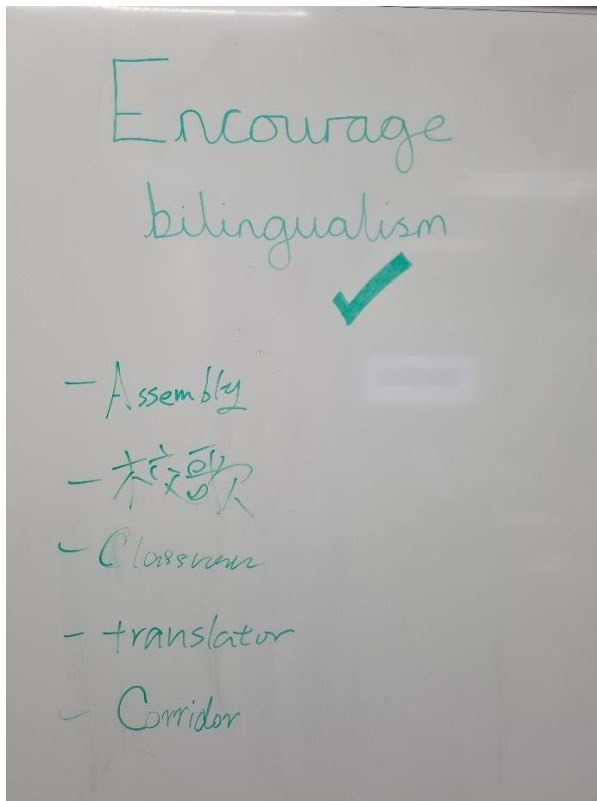 Encourage
bilingualism
- Assembly
- 校歌
- Classroom
- translator
- Corridor